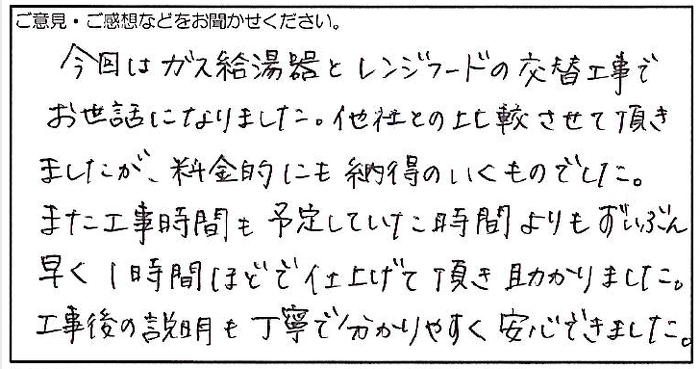 ご意見・ご感想などをお聞かせください。
今回はガス給湯器とレンジフードの交替工事で
お世話になりました。他社との比較させて頂き
ましたが、料金的にも納得のいくものでした。
また工事時間も予定していた時間よりもずいぶん
早く1時間ほどで仕上げて頂き助かりました。
工事後の説明も丁寧で分かりやすく安心できました。